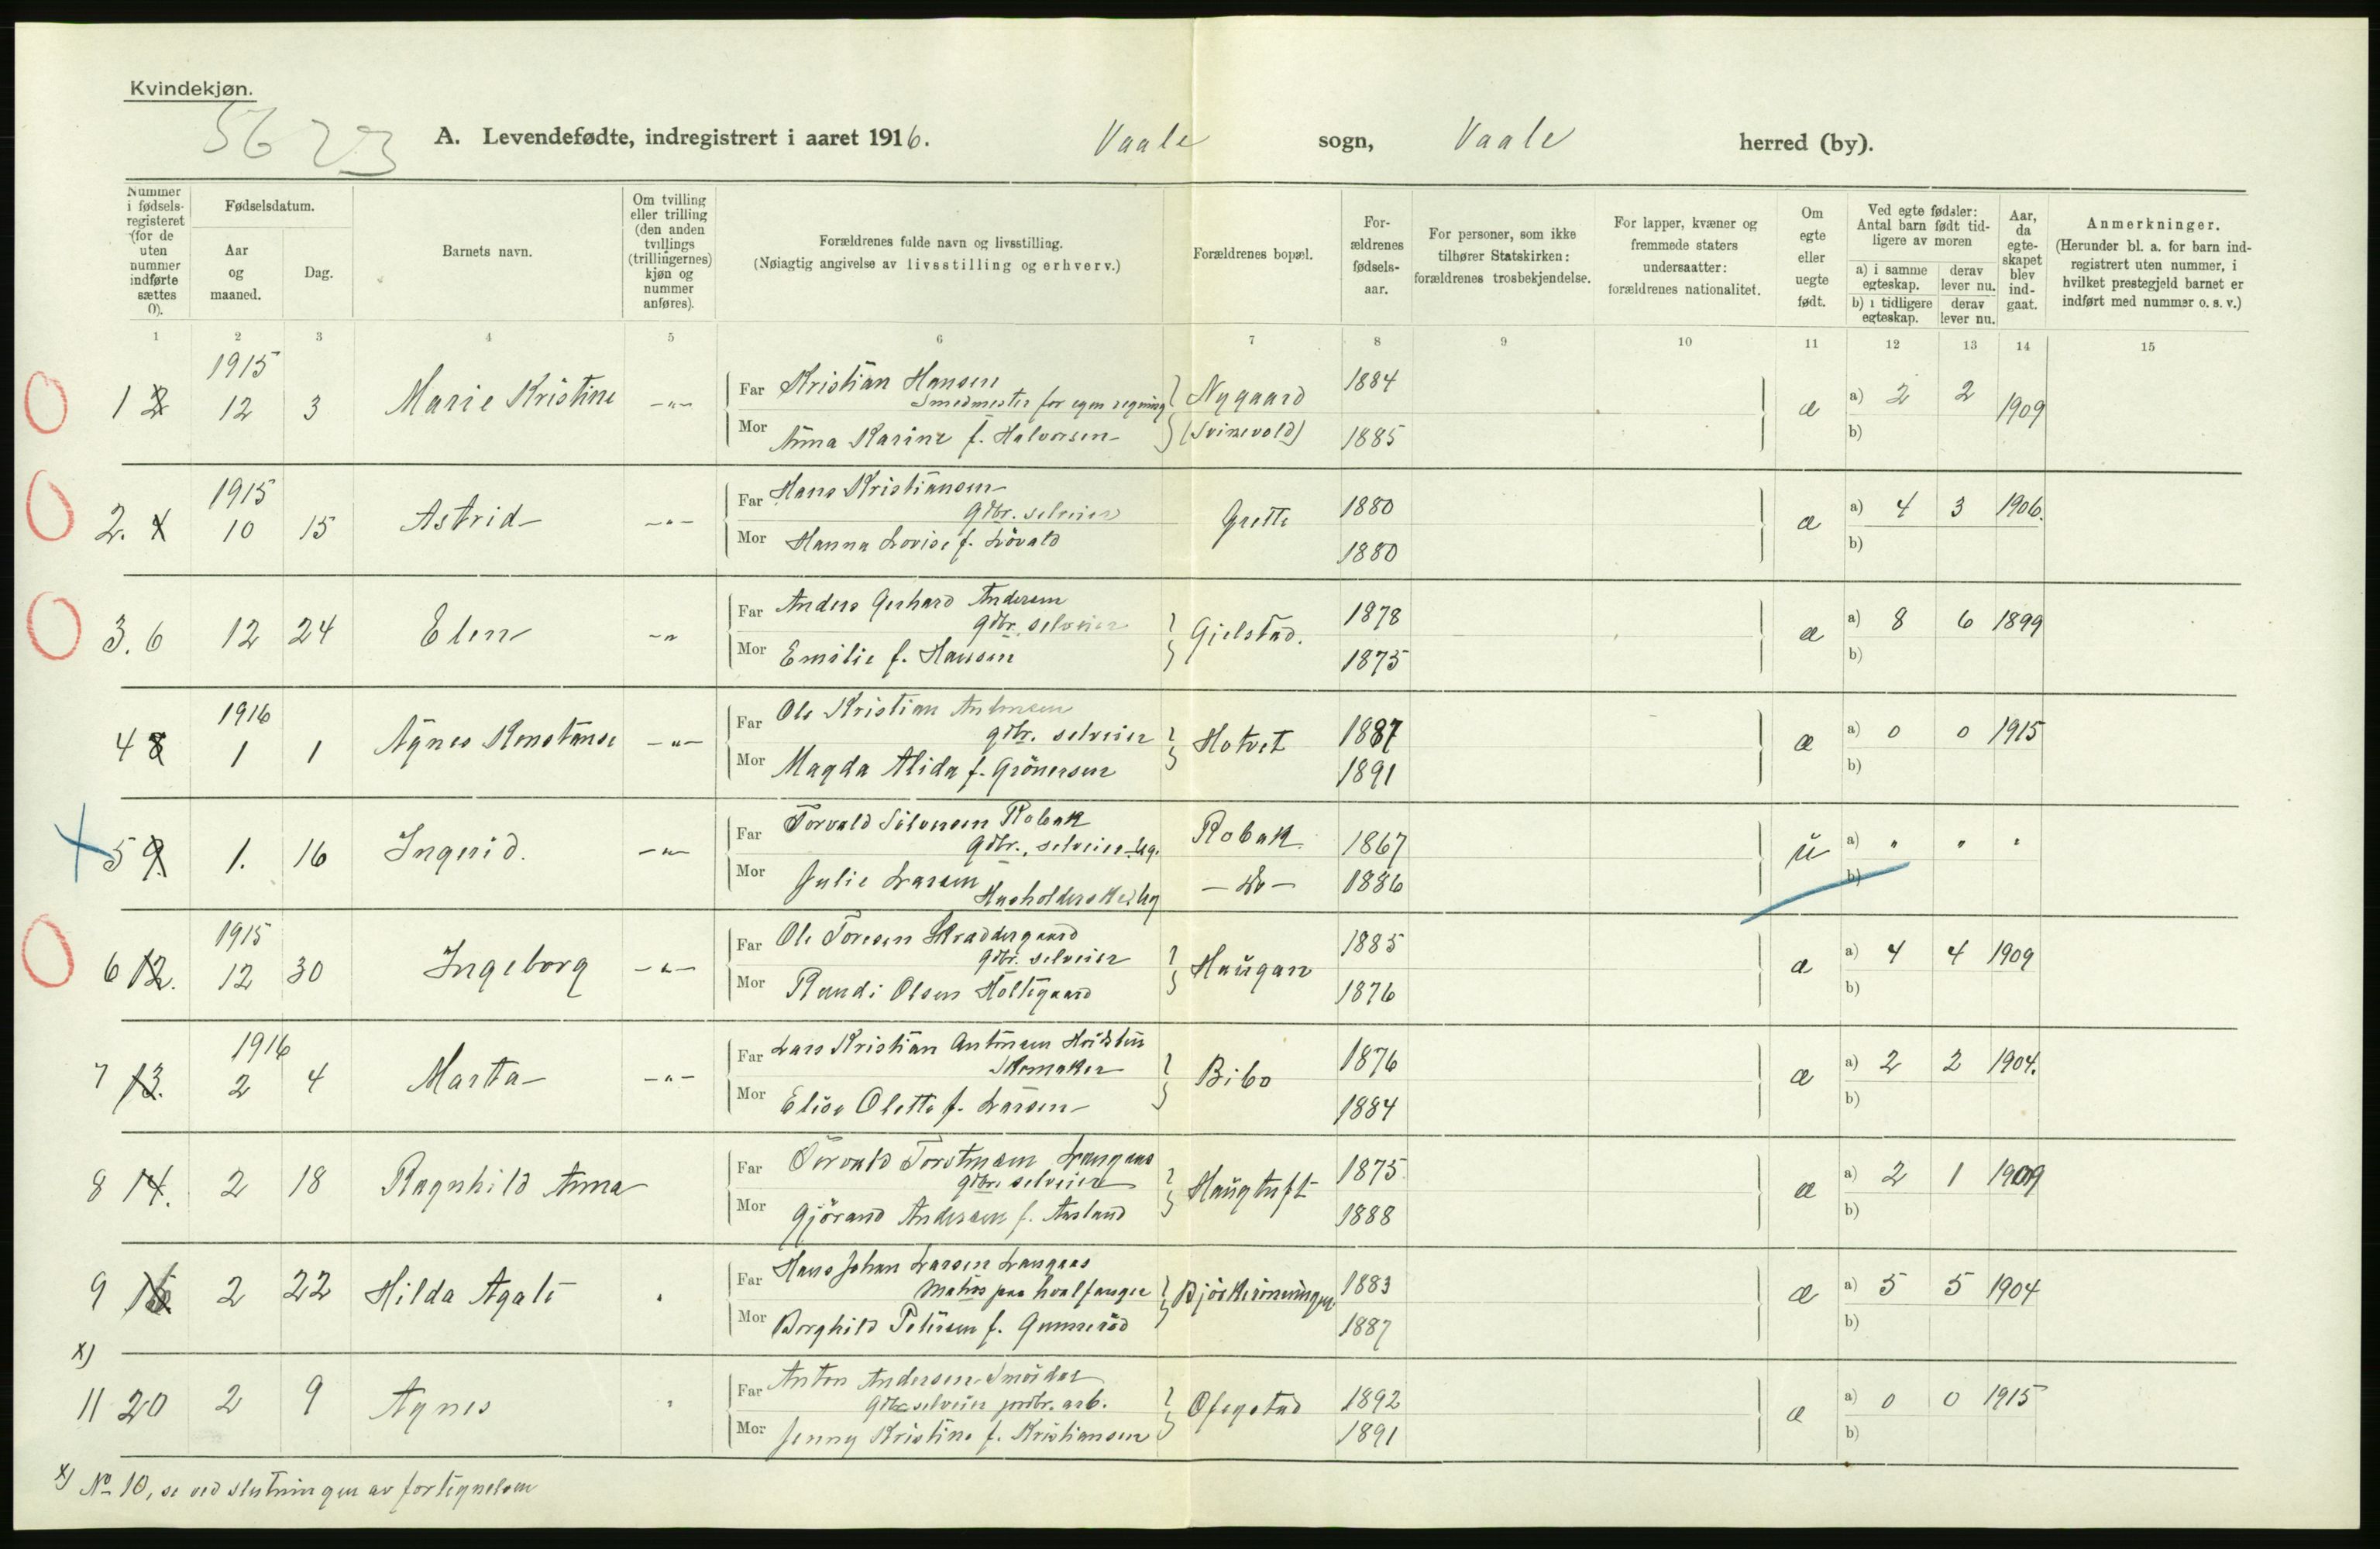 Kvindekjøn.
5623
A. Levendefødte, indregistrert i aaret 1916. Vaale sogn, Vaale herred (by).
Nummer i fødselsregisteret (for de uten nummer indførte sættes 0).
Fødselsdatum.
Aar og maaned.
Dag.
Barnets navn.
Om tvilling eller trilling (den anden tvillings (trillingernes) kjøn og nummer anføres).
Forældrenes fulde navn og livsstilling.
(Nøiagtig angivelse av livsstilling og erhverv.)
Forældrenes bopæl.
Forældrenes fødselsaar.
For personer, som ikke tilhører Statskirken: forældrenes trosbekjendelse.
For lapper, kvæner og fremmede staters undersaatter: forældrenes nationalitet.
Om egte eller uegte født.
Ved egte fødsler: Antal barn født tidligere av moren
a) i samme egteskap. derav lever nu.
b) i tidligere egteskap. derav lever nu.
Aar, da egteskapet blev indgaat.
Anmerkninger.
(Herunder bl. a. for barn indregistrert uten nummer, i hvilket prestegjeld barnet er indført med nummer o. s. v.)
1 2 3 4 5 6 7 8 9 10 11 12 13 14 15
1915
1 2 12 3 Marie Kristine -"- Far Kristian Hansen Smedmester for egen regning Nygaard 1884 æ a) 2 2 1909
Mor Anna Karine f. Halvorsen (Svinevold) 1885 b)
1915
2. 4 10 15 Astrid -"- Far Hans Kristiansen Gdbr. selveier Grette 1880 æ a) 4 3 1906.
Mor Hanna Lovise f. Lövald 1880 b)
3. 6 12 24 Elen -"- Far Anders Gerhard Andersen gdbr. selveier Gjelstad. 1878 æ a) 8 6 1899
Mor Emilie f. Hansen 1875 b)
1916
4 8 1 1 Agnes Konstanse -"- Far Ole Kristian Antonsen gdbr. selveier Hotvet 1887 æ a) 0 0 1915
Mor Magda Alida f. Grönersen 1891 b)
5 9. 1. 16 Ingerid. -"- Far Torvald Robak Gdbr., selveier. Ug. Robak 1867 u a) " " "
Mor Julie Larsen Husholderske. Ug - Do - 1886 b)
1915
6 12. 12 30 Ingeborg -"- Far Ole Toresen gdbr. selveier Haugan 1885 æ a) 4 4 1909
Mor Randi Olsen Holtegaard 1876 b)
1916
7 13. 2 4 Marta -"- Far Lars Kristian Antonsen Skomaker Bibo 1876 æ a) 2 2 1904.
Mor Elise Olette f. Larsen 1884 b)
8 14. 2 18 Ragnhild Anna Far Torvald Torstensen Langaas gdbr. selveier Haugtuft 1875 æ a) 2 1 1909
Mor Gjörand Andersen f. Aasland 1888 b)
9 2 22 Hilda Agate " Far Hans Johan Larsen Langaas Matros paa hvalfanger 1883 æ a) 5 5 1904
Mor Borghild Petersen f. Gunneröd 1887 b)
x)
11 20 2 9 Agnes " Far Anton Andersen gdbr. selveier jordbr. arb. Ofegstad 1892 æ a) 0 0 1915
Mor Jenny Kristine f. Kristiansen 1891 b)
x) No 10, se ved slutningen av fortegnelsen